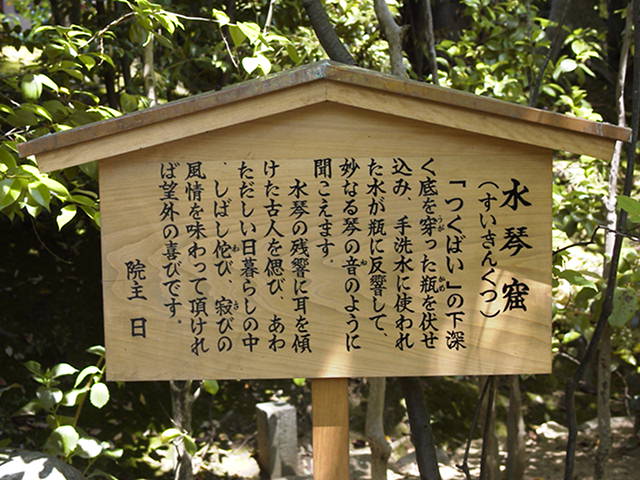 水琴窟
（すいきんくつ）
「つくばい」の下深
く底を穿った瓶を伏せ
込み、手洗水に使われ
た水が瓶に反響して、
妙なる琴の音のように
聞こえます。
水琴の残響に耳を傾
けた古人を偲び、あわ
ただしい日暮らしの中
、しばし侘び、寂びの
風情を味わって頂けれ
ば望外の喜びです。
院主 日